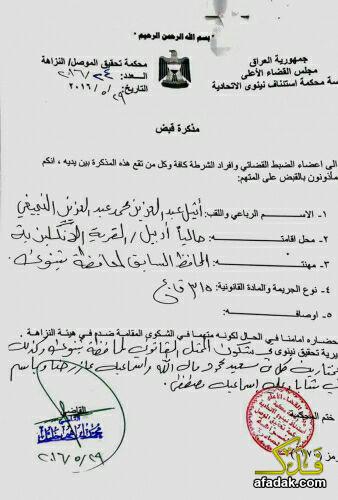 " بسم الله الرحمن الرحيم "
جمهورية العراق
مجلس القضاء الأعلى
رئاسة محكمة استئناف نينوى الاتحادية
محكمة تحقيق الموصل/ النزاهة
العدد: ٢٠١٦/٢٤
التاريخ: ٢٠١٦/٥/٢٩
مذكرة قبض
الى اعضاء الضبط القضائي وافراد الشرطة كافة وكل من تقع هذه المذكرة بين يديه ، انكم
مأذونون بالقبض على المتهم:
١- الاسم الرباعي واللقب: أثيل عبد العزيز محمد عبد العزيز النجيفي
٢- محل اقامتـه: حالياً أربيل / القرية الانكليزية
٣- مهنتـه: المحافظ السابق لمحافظة نينوى
٤- نوع الجريمة والمادة القانونية: ٣١٥ ق ع
٥- اوصافـه:
حضاره امامنا في الحال لكونه متهما في الشكوى المقامة ضدم في هيئة النزاهة
يرية تحقيق نينوى الممثل القانوني لمحافظة نينوى وكذلك
كل من سعيد
علي اسماعيل مصطفى
ختم المحكمة
القاضي
٢٠١٦/٥/٢٩
فدك
afadak.com